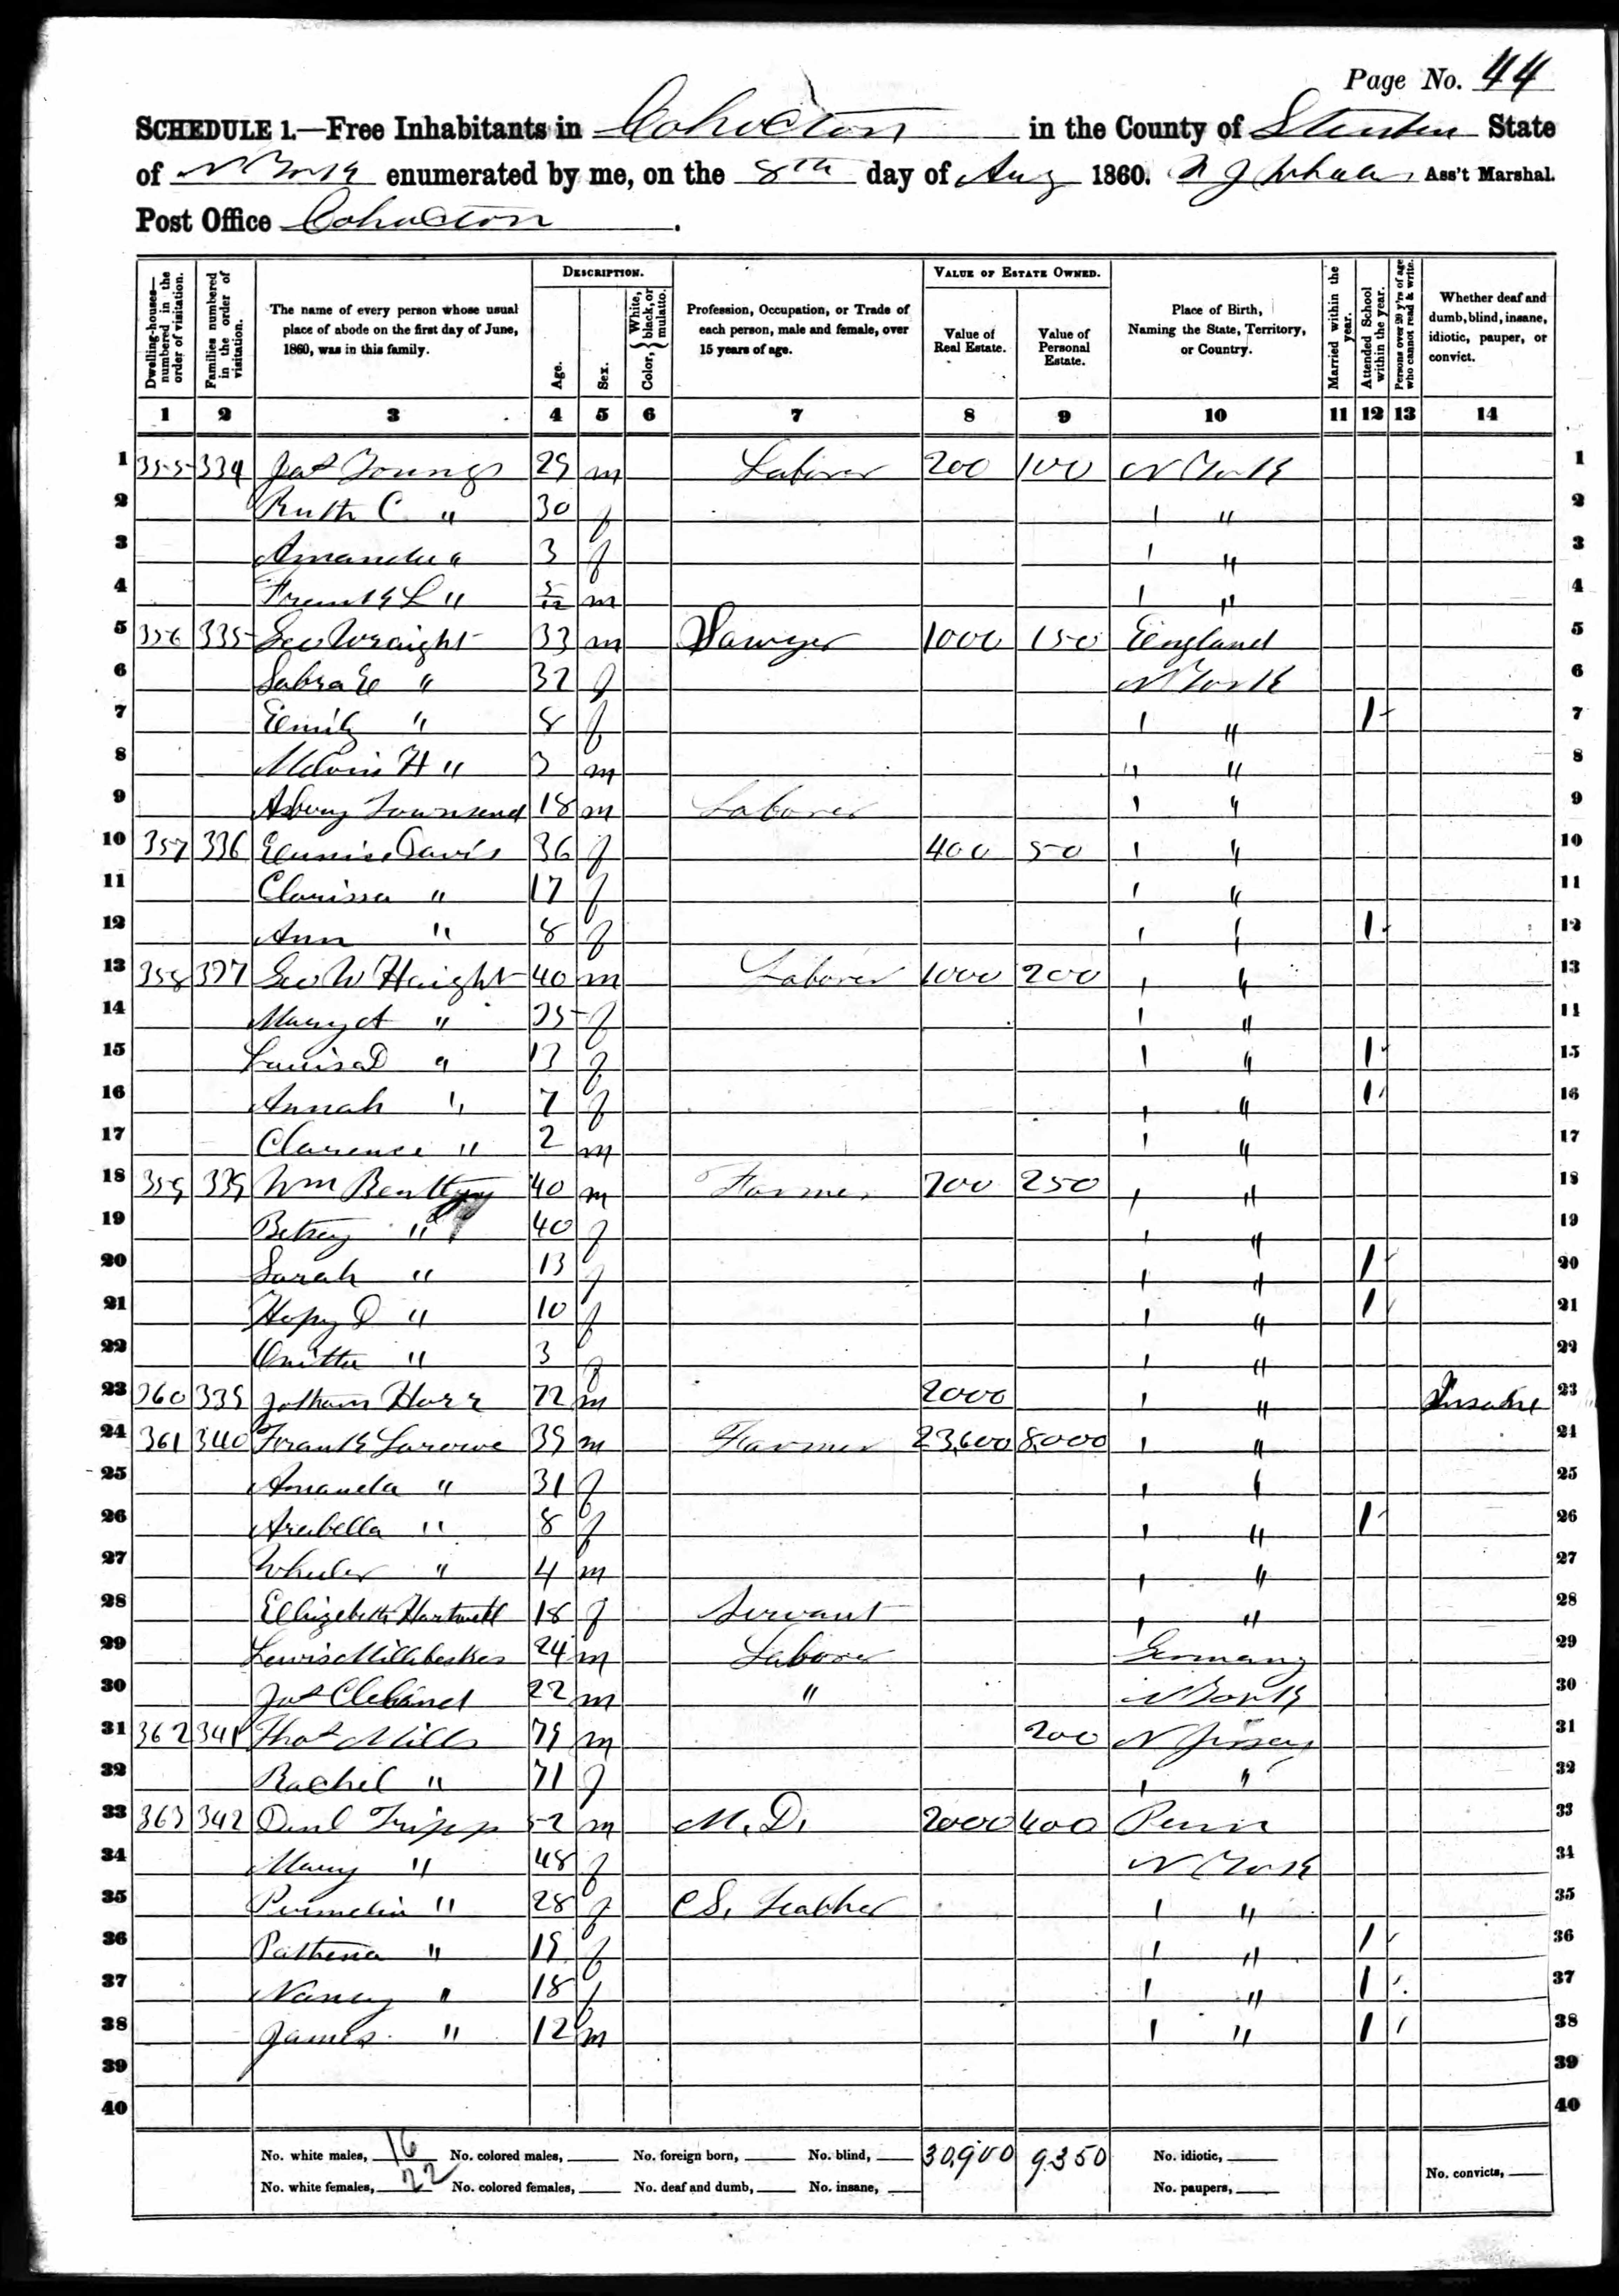 Page No. 44
SCHEDULE 1.—Free Inhabitants in Cohocton in the County of Steuben State
of N York enumerated by me, on the 8th day of Aug 1860. Ass't Marshal.
Post Office Cohocton.
Dwelling-houses—numbered in the order of visitation. Families numbered in the order of visitation. The name of every person whose usual place of abode on the first day of June, 1860, was in this family. DESCRIPTION. Age. Sex. Color, { White, black, or mulatto. Profession, Occupation, or Trade of each person, male and female, over 15 years of age. VALUE OF ESTATE OWNED. Value of Real Estate. Value of Personal Estate. Place of Birth, Naming the State, Territory, or Country. Married within the year. Attended School within the year. Persons over 20 y'rs of age who cannot read & write. Whether deaf and dumb, blind, insane, idiotic, pauper, or convict.
1 2 3 4 5 6 7 8 9 10 11 12 13 14
1 355 334 Jas Youngs 29 m Laborer 200 100 N York 1
2 Ruth C " 30 f " " 2
3 Amanda " 3 f " " 3
4 Frank L " 5/12 m " " 4
5 356 335 Geo Wraight 33 m Sawyer 1000 150 England 5
6 Sabra E " 32 f N York 6
7 Emily " 8 f " " 1 7
8 Melvin H " 3 m " " 8
9 Asbury Townsend 18 m Laborer " " 9
10 357 336 Eunise Davis 36 f 400 50 " " 10
11 Clarissa " 17 f " " 11
12 Ann " 8 f " " 1 12
13 358 337 Geo W Haight 40 m Laborer 1000 200 " " 13
14 Mary A " 35 f " " 14
15 Louisa D " 13 f " " 1 15
16 Annah " 7 f " " 1 16
17 Clarence " 2 m " " 17
18 359 339 Wm 40 m Farmer 700 250 " " 18
19 Betsey " 40 f " " 19
20 Sarah " 13 f " " 1 20
21 D " 10 f " " 1 21
22 " 3 f " " 22
23 360 339 Jotham 72 m 2000 " " Insane 23
24 361 340 Frank Larowe 39 m Farmer 23,600 8,000 " " 24
25 Amanda " 31 f " " 25
26 Arabella " 8 f " " 1 26
27 Wheeler " 4 m " " 27
28 Ellizebeth Hartwell 18 f Servant " " 28
29 Lewis 24 m Laborer Germany 29
30 Jas 22 m " N York 30
31 362 341 Thos Mills 79 m 200 N Jersey 31
32 Rachel " 71 f " " 32
33 363 342 Danl Tripp 52 m M. D. 2000 400 Penn 33
34 Mary " 48 f N York 34
35 Permelia " 28 f C S. Teacher " " 35
36 Pathena " 19 f " " 1 36
37 Nancy " 18 f " " 1 37
38 James " 12 m " " 1 38
39 39
40 40
No. white males, 16 No. colored males, No. foreign born, No. blind, 30,900 9350 No. idiotic,
No. white females, 22 No. colored females, No. deaf and dumb, No. insane, No. paupers, No. convicts,